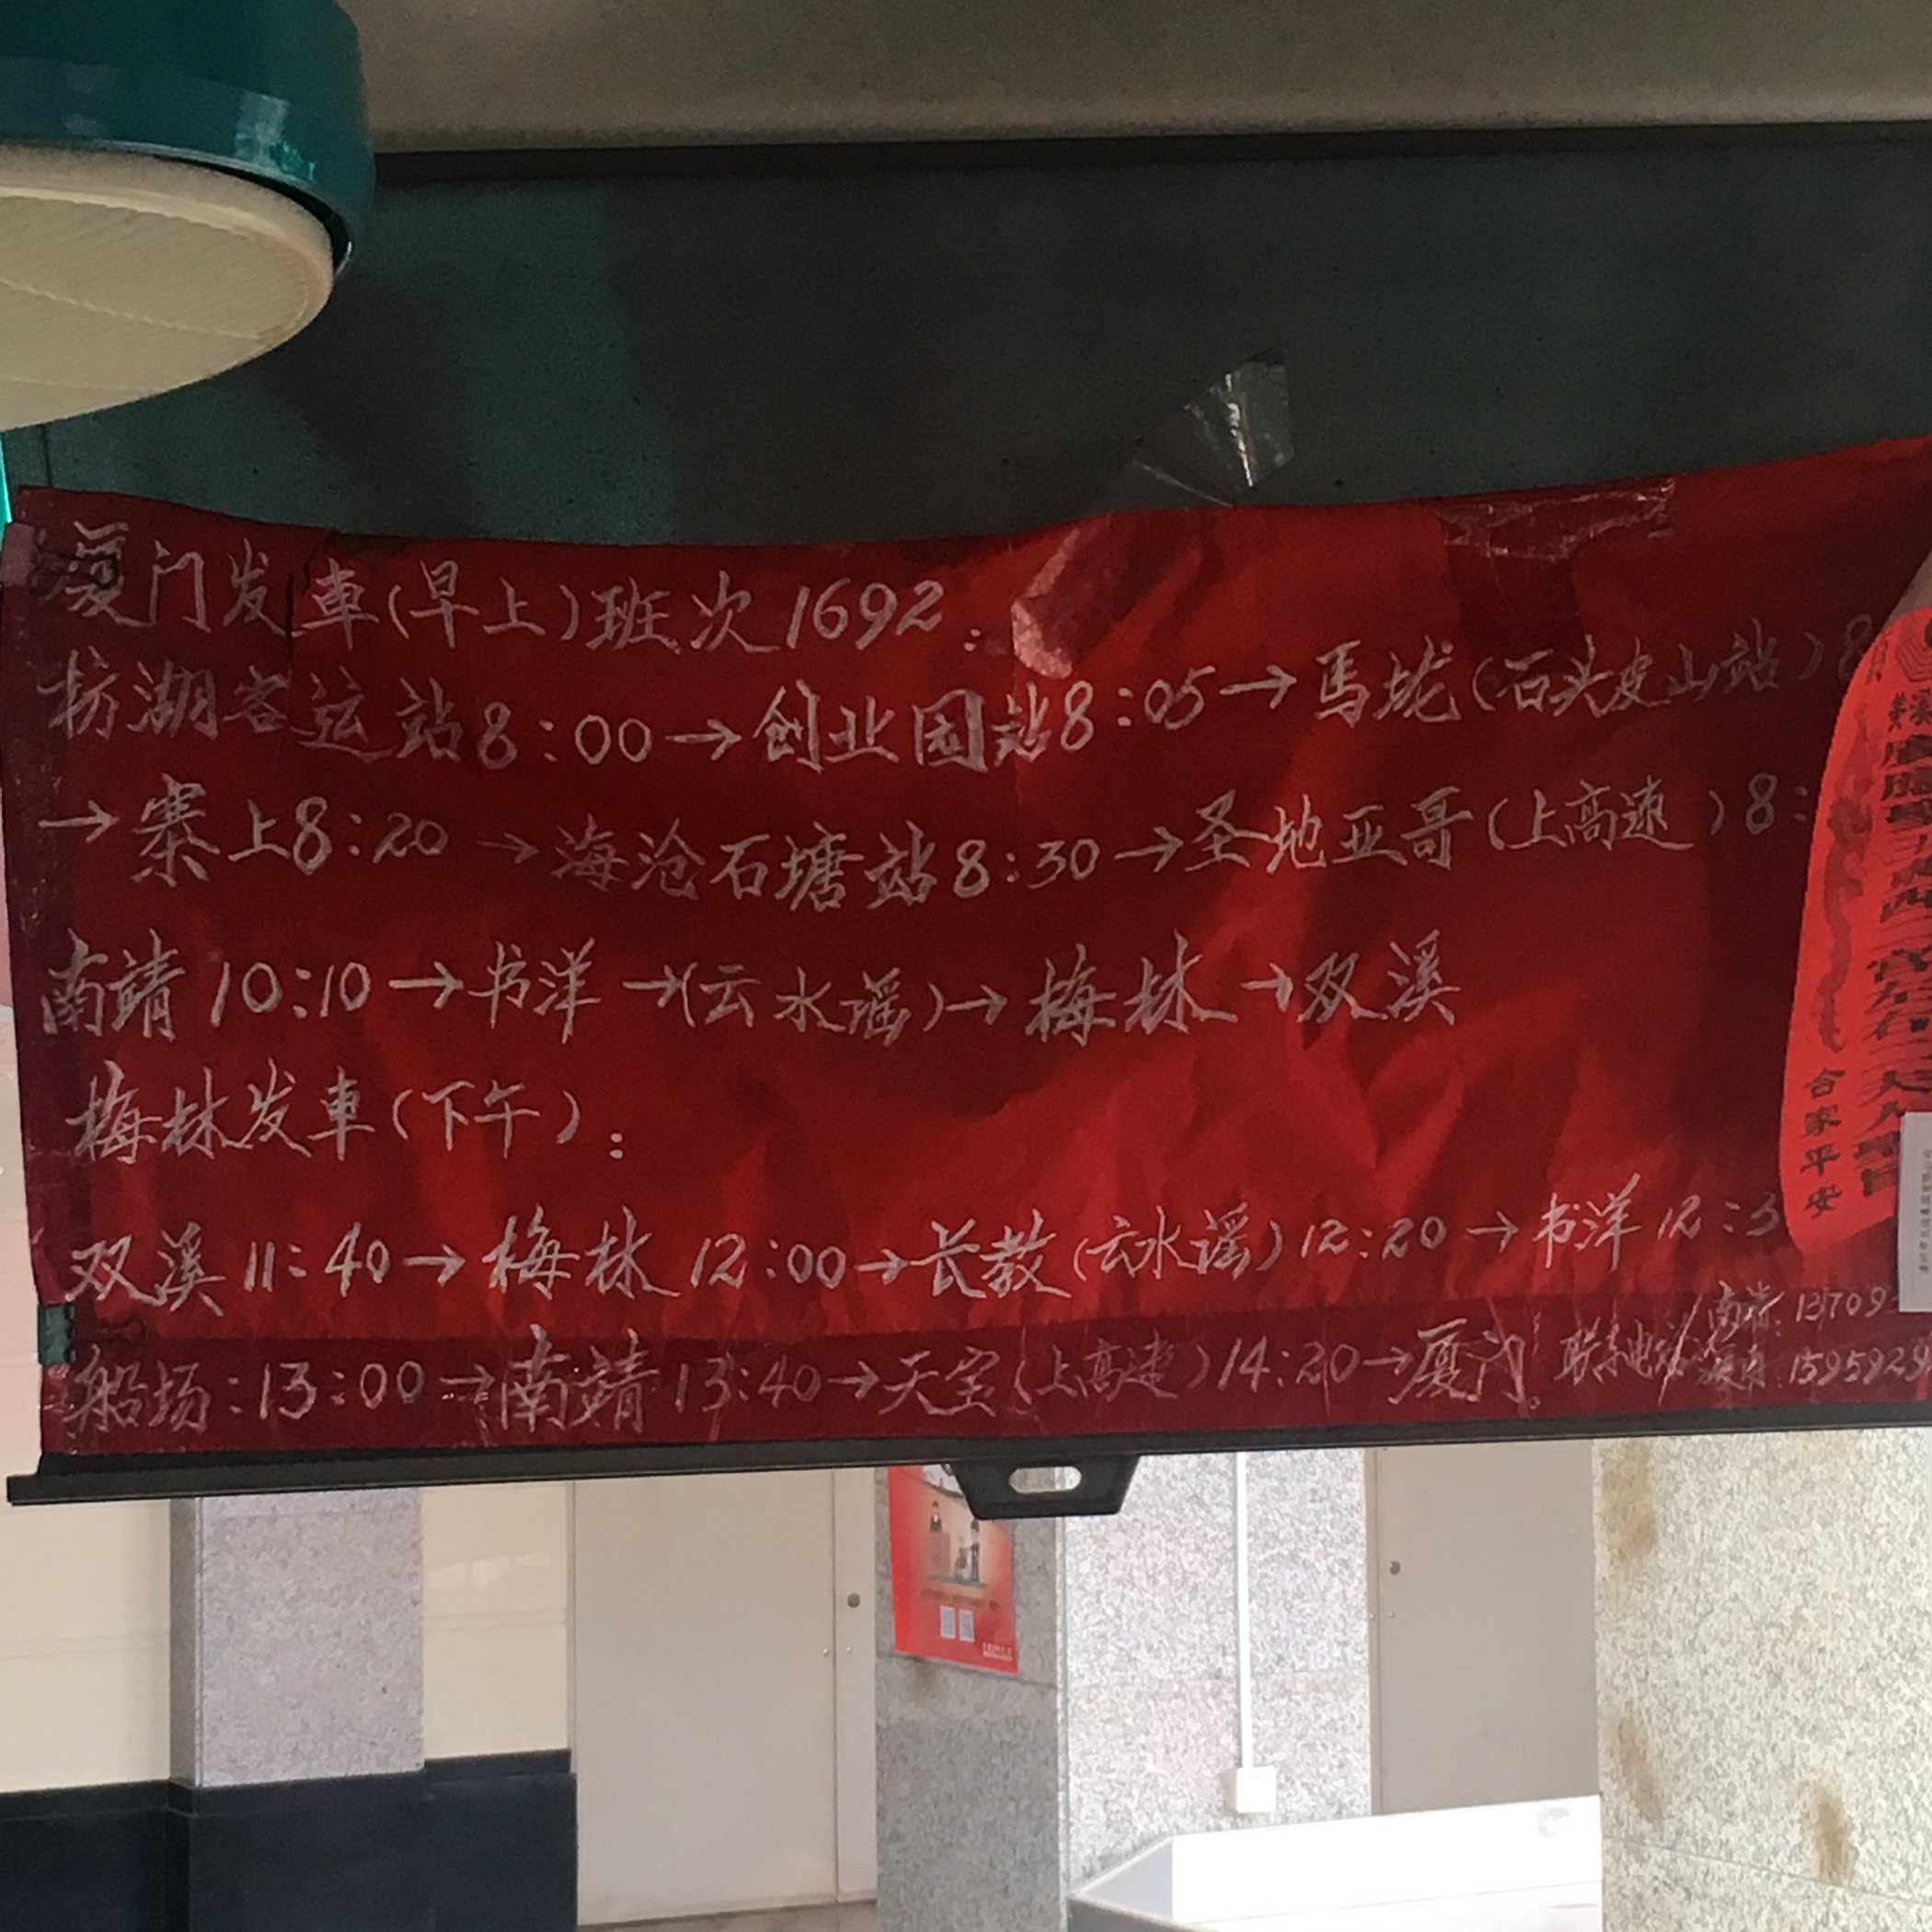 厦门发車(早上)班次1692:
枋湖客运站8:00→创业园站8:05→馬垅(石头皮山站)8
→寨上8:20→海沧石塘站8:30→圣地亚哥(上高速)8:
南靖10:10→书洋→(云水谣)→梅林→双溪
梅林发車(下午):
双溪11:40→梅林12:00→长教(云水谣)12:20→书洋12:3
船场:13:00→南靖13:40→天宝(上高速)14:20→厦门。联系电话
南靖:13709
1595929
合家平安